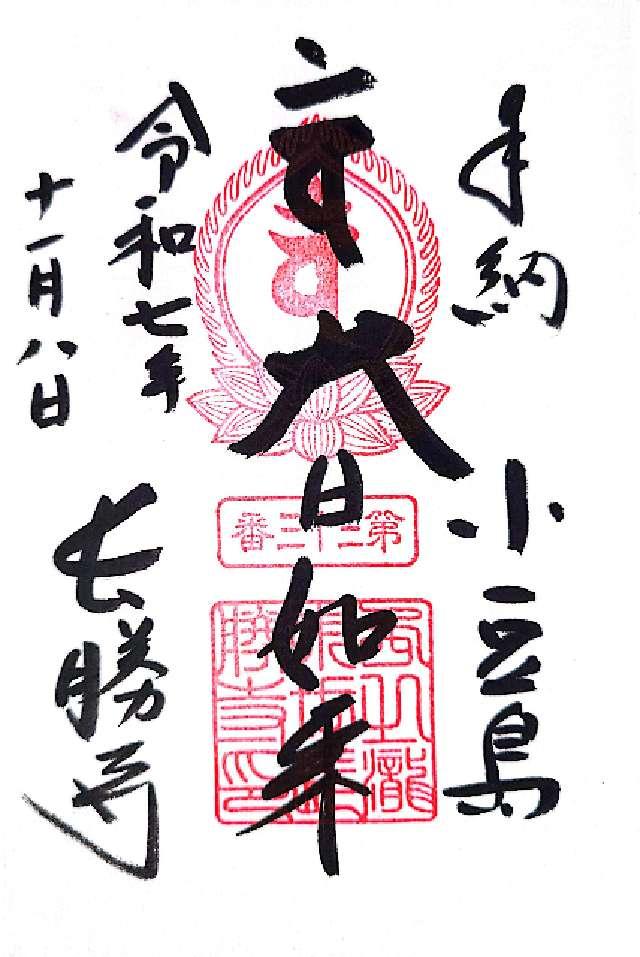 奉納 小豆島
大日如来
第三十三番
令和七年
十一月八日
長勝寺